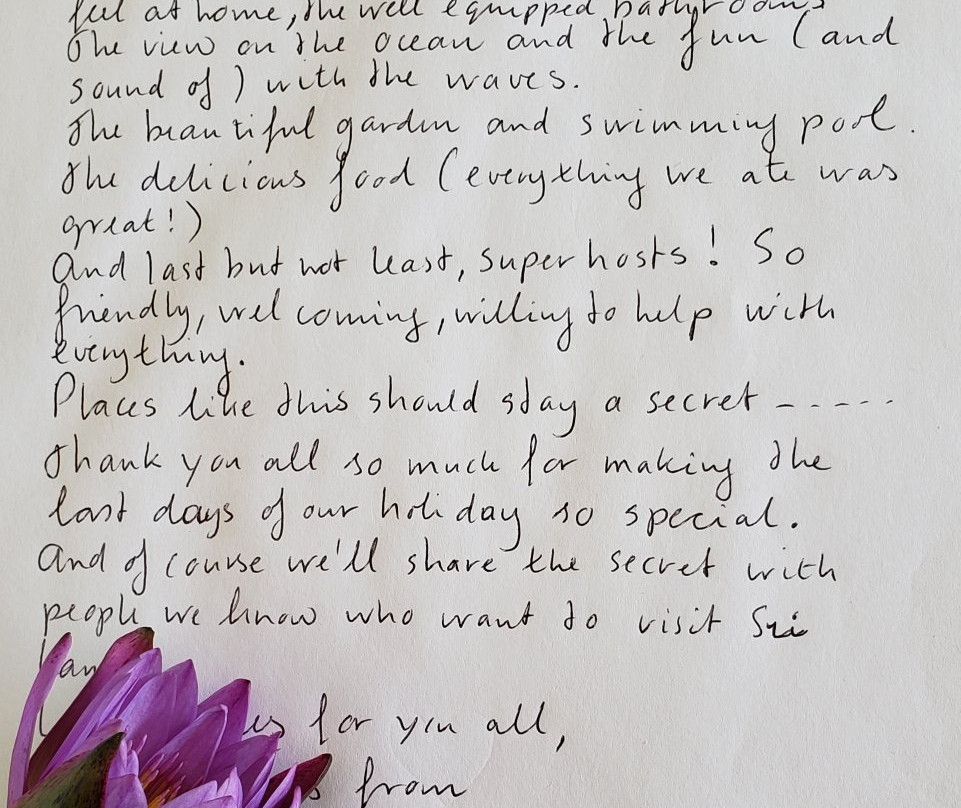 feel at home, the well equipped bathrooms
The view on the ocean and the fun (and
sound of) with the waves.
The beautiful garden and swimming pool.
The delicious food (everything we ate was
great!)
And last but not least, super hosts! So
friendly, welcoming, willing to help with
everything.
Places like this should stay a secret -----
Thank you all so much for making the
last days of our holiday so special.
And of course we'll share the secret with
people we know who want to visit Sri
for you all,
from